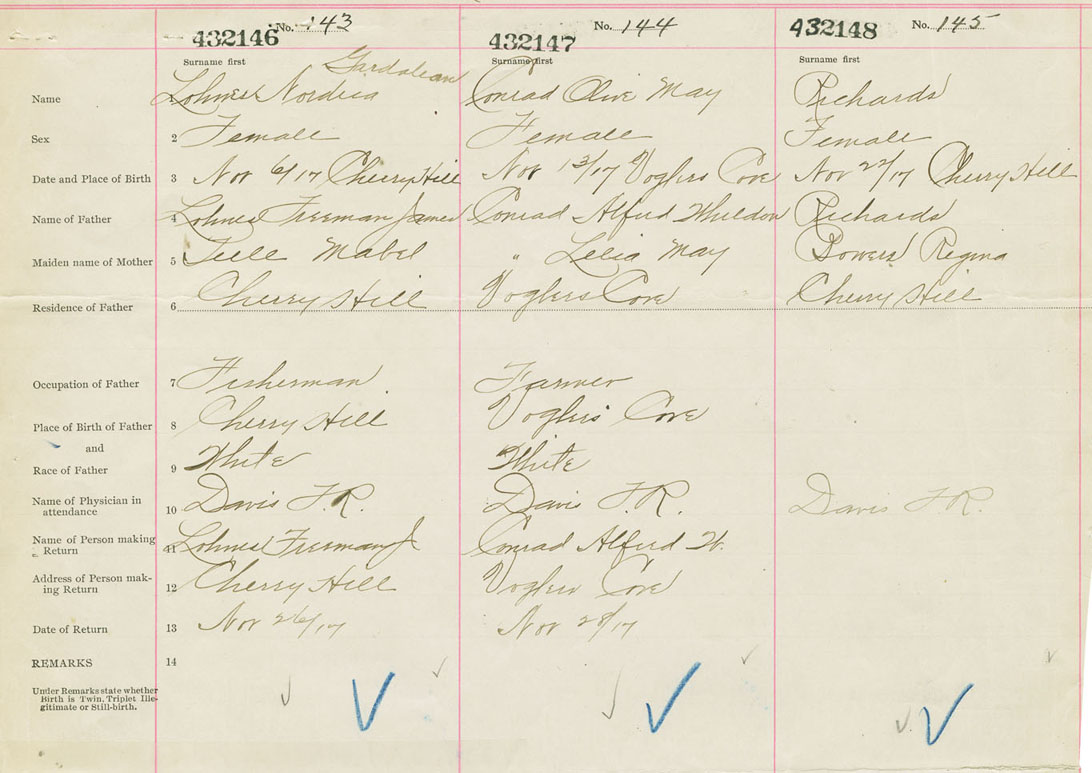 432146 No. 143 432147 No. 144 432148 No. 145
Surname first Surname first Surname first
Gardolean
Name 1 Lohnes Nordica Conrad Olive May Richards
Sex 2 Female Female Female
Date and Place of Birth 3 Nov 6/17 Cherry Hill Nov 13/17 Voglers Cove Nov 22/17 Cherry Hill
Name of Father 4 Lohnes Freeman James Conrad Alfred Wheldon Richards
Maiden name of Mother 5 Teele Mabel " Lelia May Bowers Regina
Residence of Father 6 Cherry Hill Voglers Cove Cherry Hill
Occupation of Father 7 Fisherman Farmer
Place of Birth of Father 8 Cherry Hill Voglers Cove
and
Race of Father 9 White White
Name of Physician in
attendance 10 Davis F.R. Davis F.R. Davis F.R.
Name of Person making
Return 11 Lohnes Freeman J Conrad Alfred W.
Address of Person mak-
ing Return 12 Cherry Hill Voglers Cove
Date of Return 13 Nov 26/17 Nov 28/17
REMARKS 14
Under Remarks state whether
Birth is Twin, Triplet Ille-
gitimate or Still-birth.